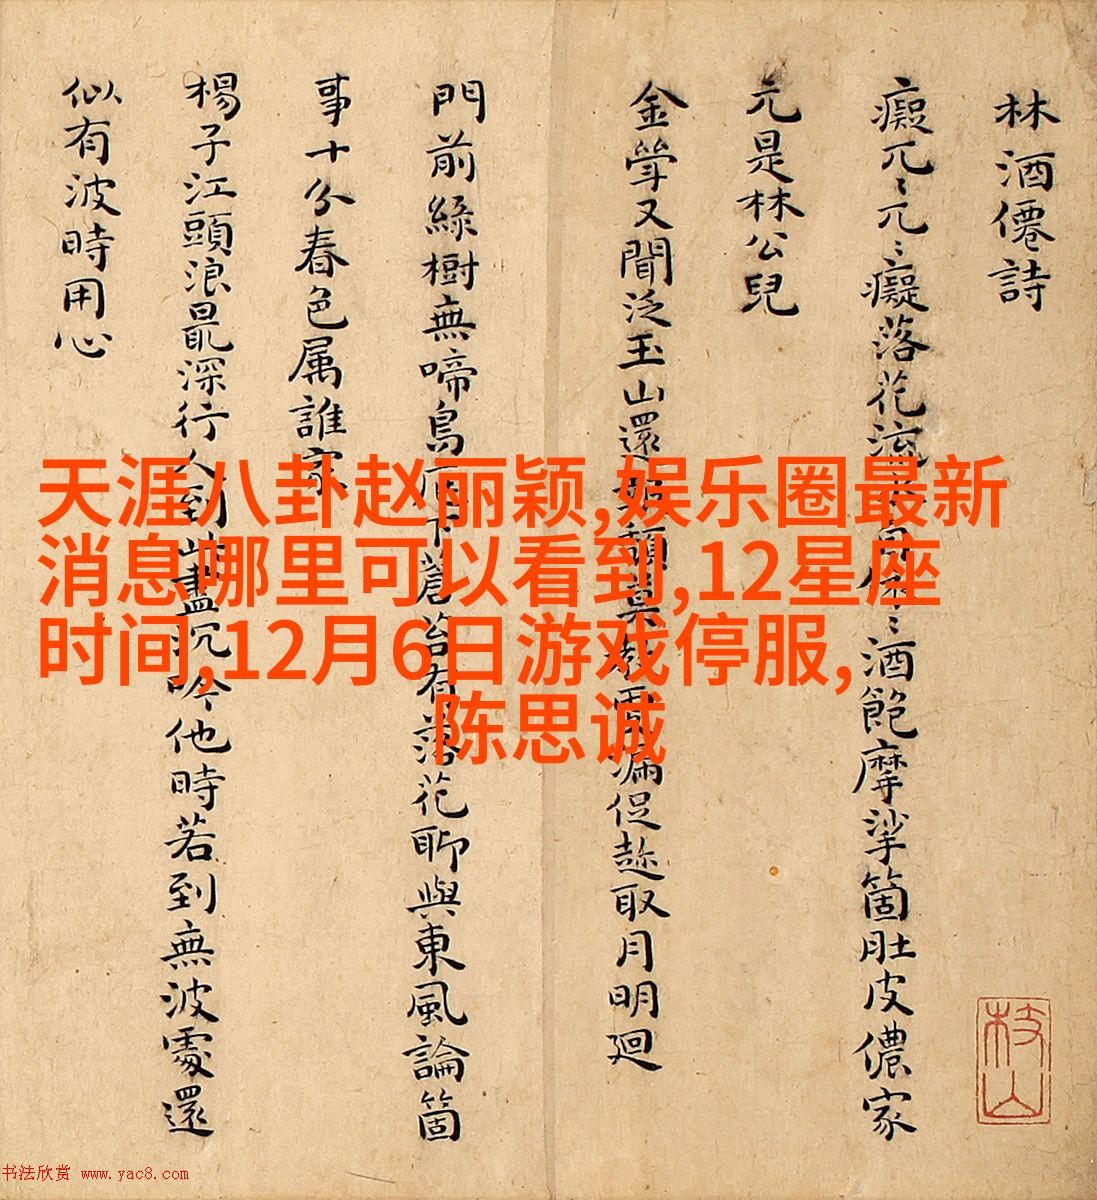 林酒僊詩
癡兀〻兀〻癡落花流
〻酒飽摩挲箇肚皮儂家
元是林公兒
金斝又聞泛玉山還
漏促趂取月明廻
門前綠樹無啼鳥
下蒼苔有落花聊與東風論箇
事十分春色属誰家
楊子江頭浪最深行人到此盡沉吟他時若到無波處還
似有波時用心
枝山
天涯八卦赵丽颖,娱乐圈最新
消息哪里可以看到,12星座
时间,12月6日游戏停服,
陈思诚
书法欣赏 www.yac8.com